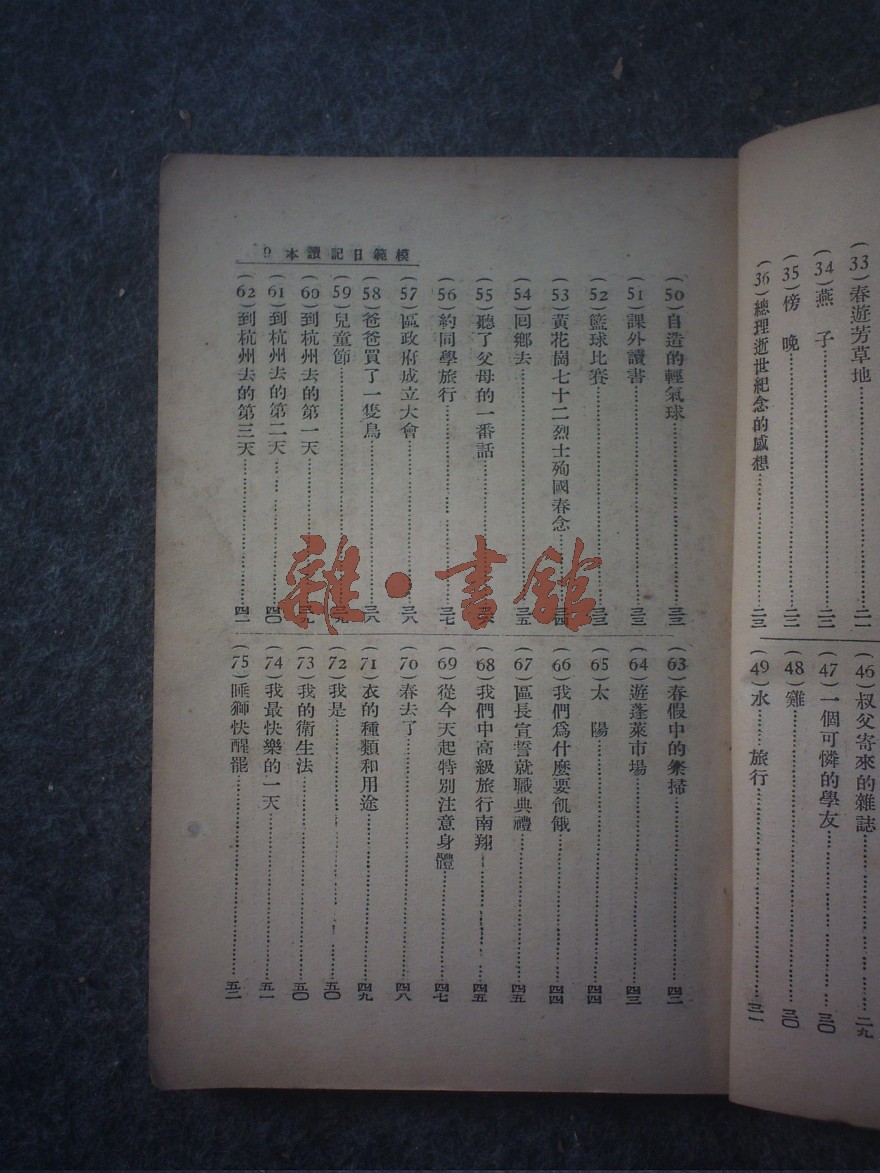 (33)春遊芳草地……二一
(34)燕子……二二
(35)傍晚……二二
(36)總理逝世紀念的感想……二三
(46)叔父寄來的雜誌……二九
(47)一個可憐的學友……三〇
(48)雞……三〇
(49)水……旅行……三一
模範日記讀本 9
(50)自造的輕氣球……三三
(51)課外讀書……三三
(52)籃球比賽……三三
(53)黃花崗七十二烈士殉國春念……三四
(54)回鄉去……三五
(55)聽了父母的一番話……三六
(56)約同學旅行……三七
(57)區政府成立大會……三八
(58)爸爸買了一隻鳥……三八
(59)兒童節……三九
(60)到杭州去的第一天……三九
(61)到杭州去的第二天……四〇
(62)到杭州去的第三天……四一
(63)春假中的祭掃……四二
(64)遊蓬萊市場……四三
(65)太陽……四四
(66)我們爲什麼要飢餓……四四
(67)區長宣誓就職典禮……四五
(68)我們中高級旅行南翔……四五
(69)從今天起特別注意身體……四七
(70)春去了……四八
(71)衣的種類和用途……四九
(72)我是……五〇
(73)我的衛生法……五〇
(74)我最快樂的一天……五一
(75)睡獅快醒罷……五二
雜·書館